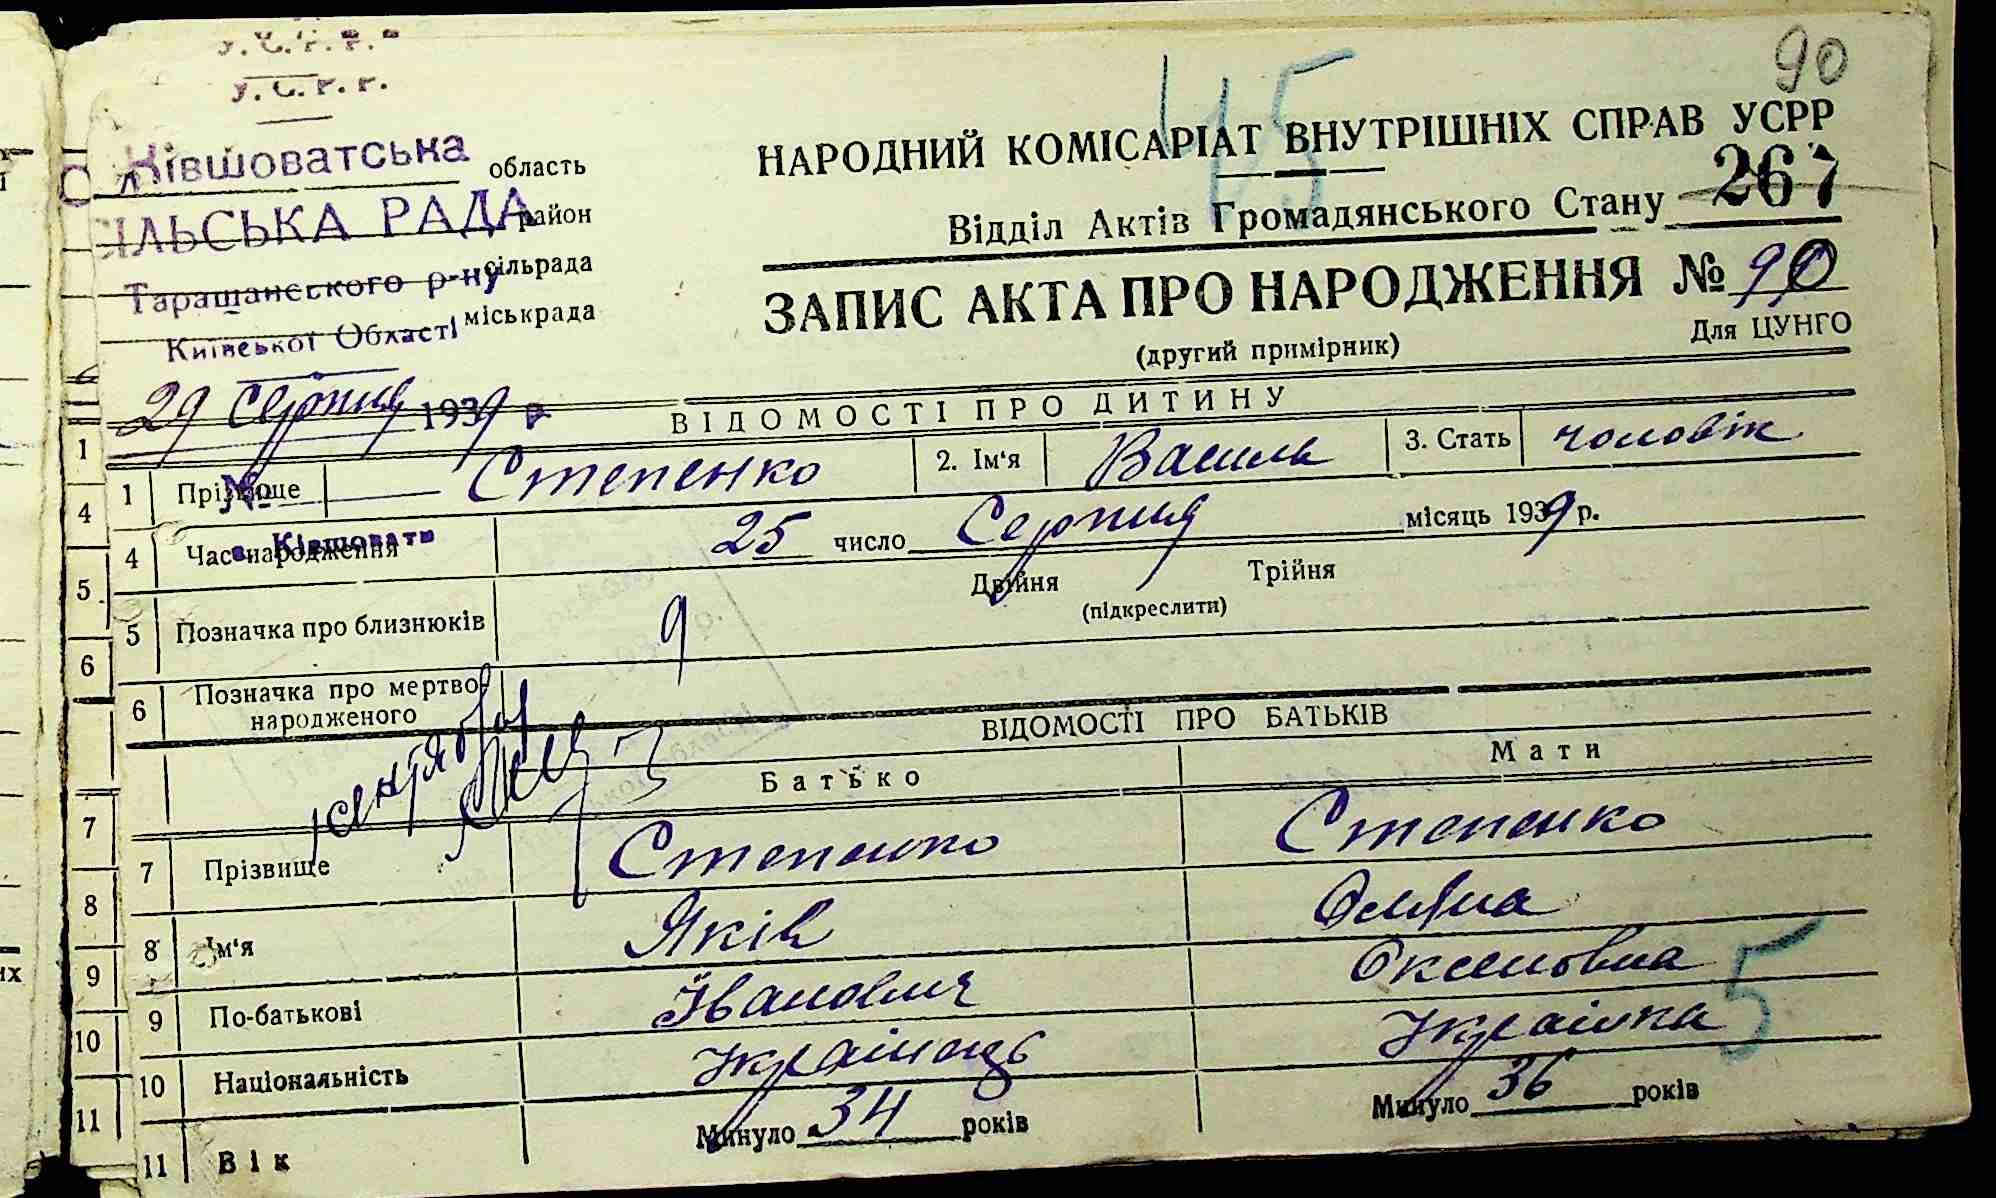 У.С.Р.Р.
У.С.Р.Р.
90
45
Ківшоватська
область
НАРОДНИЙ КОМІСАРІАТ ВНУТРІШНІХ СПРАВ УСРР
СІЛЬСЬКА РАДА
район
Відділ Актів Громадянського Стану 267
Таращанського р-ну
сільрада
ЗАПИС АКТА ПРО НАРОДЖЕННЯ № 90
Київської Області
міськрада
(другий примірник)
Для ЦУНГО
29 Серпня 1939 р
ВІДОМОСТІ ПРО ДИТИНУ
1 Прізвище Степенко 2. Ім'я Василь 3. Стать чоловік
№
4 Час народження 25 число Серпня місяць 1939 р.
с. Ківшовати
5 Позначка про близнюків Двійня Трійня
(підкреслити)
9
6 Позначка про мертво-
народженого
ВІДОМОСТІ ПРО БАТЬКІВ
Батько Мати
7 Прізвище Степенко Степенко
8 Ім'я Яків
9 По-батькові Іванович
10 Національність Українець Українка
5
11 Вік Минуло 34 років Минуло 36 років
1
4
5
6
7
8
9
10
11